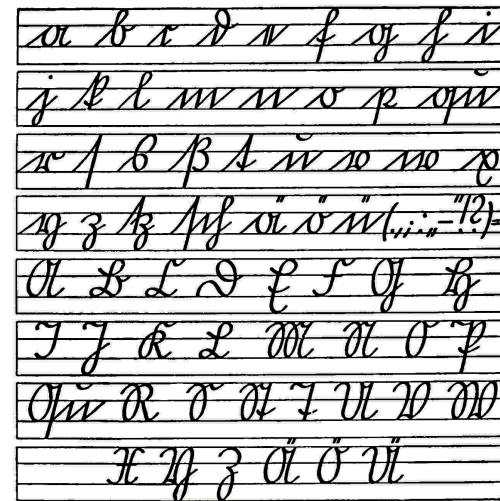 a b c d e f g h i
j k l m n o p qu
r ſ s ß t u v w x
y z tz ſch ä ö ü (.,;:„–"!?)=
A B C D E F G H
I J K L M N O P
Qu R S St T U V W
X Y Z Ä Ö Ü